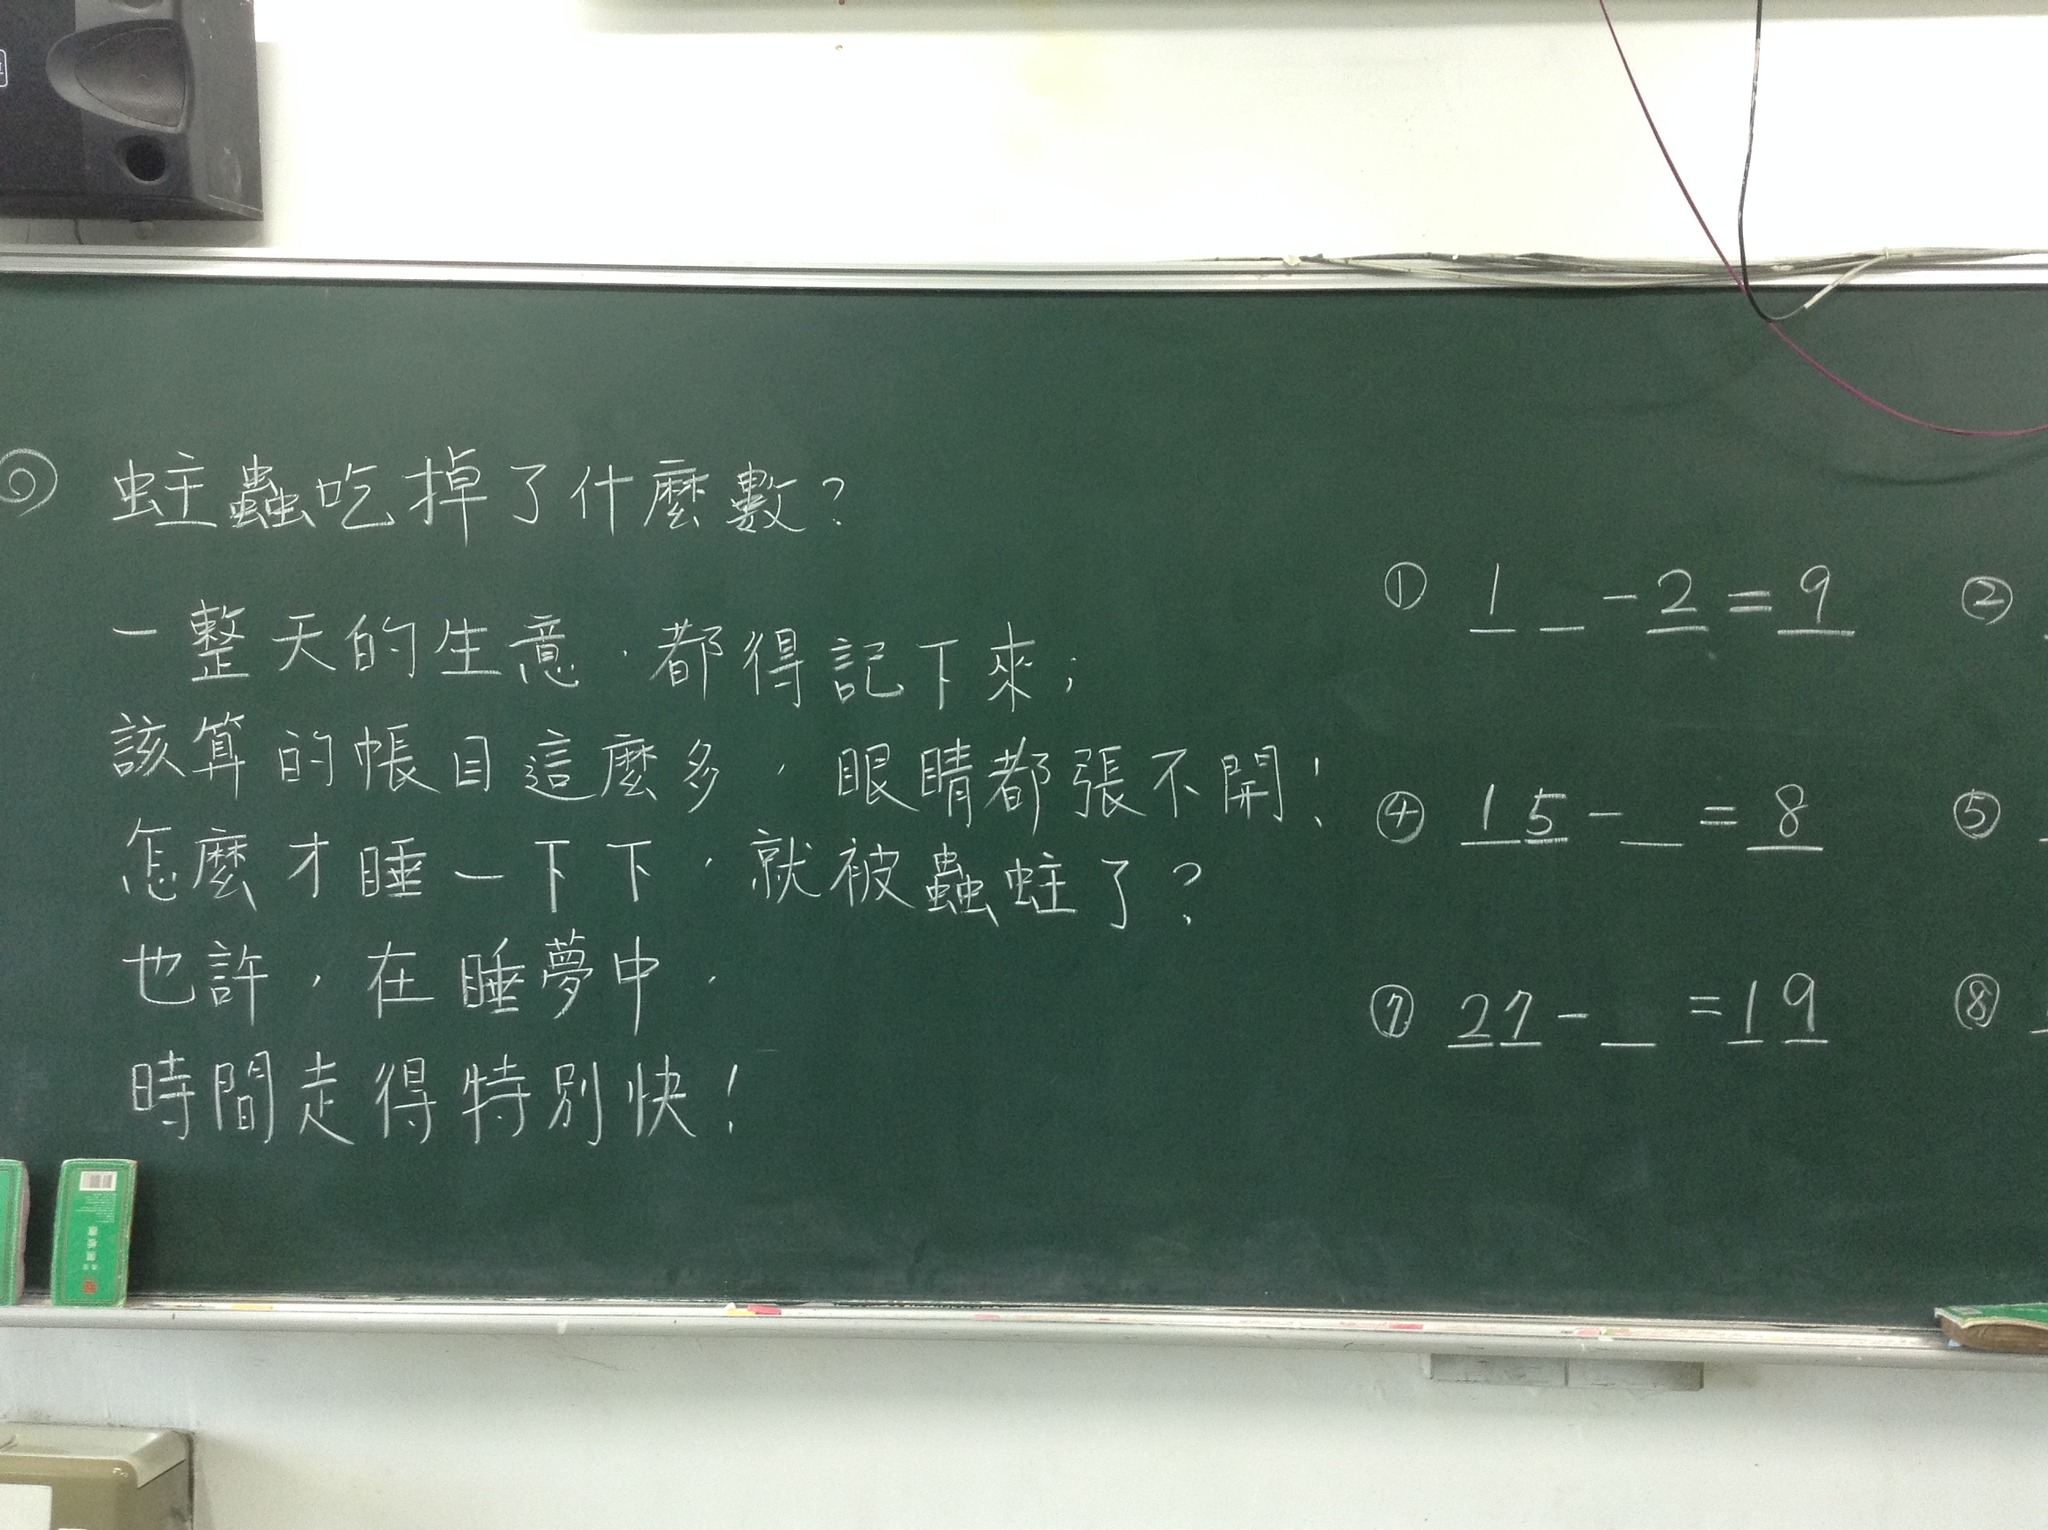 ◎ 蛀蟲吃掉了什麼數?
一整天的生意,都得記下來;
該算的帳目這麼多,眼睛都張不開!
怎麼才睡一下下,就被蟲蛀了?
也許,在睡夢中,
時間走得特別快!
① 1 _ - 2 = 9 ②
④ 15 - _ = 8 ⑤
⑦ 27 - _ = 19 ⑧